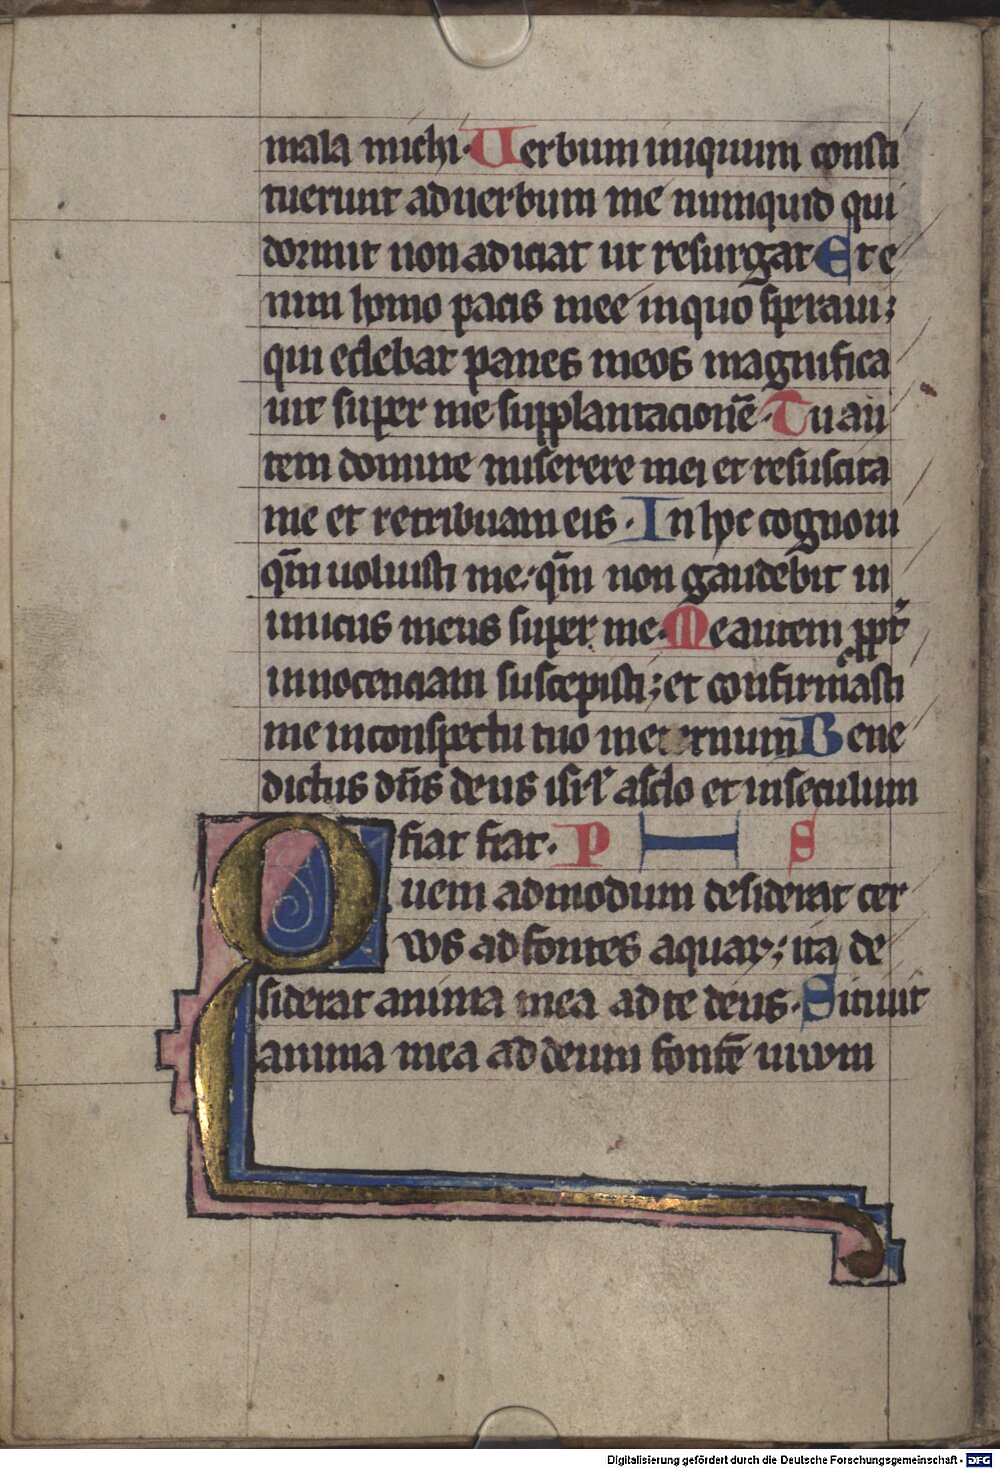 mala michi· Uerbum iniquum consti
tuerunt aduerbum me numquid qui
dormit non adiciat ut resurgat Et e
nim homo pacis mee inquo speraui;
qui edebat panes meos magnifica
uit super me supplantacionē· Tu au
tem domine miserere mei et resuscita
me et retribuam eis· In hoc cognoui
qm̄ uoluisti me; qm̄ non gaudebit in
imicus meus super me· Me autem ppt̄
innocenciam suscepisti; et confirmasti
me inconspectu tuo ineternum Bene
dictus dn̄s deus isrl̄ asclo et inseculum
fiat fiat· P S
Quem admodum desiderat cer
uos ad fontes aquaꝝ; ita de
siderat anima mea ad te deus· Sitiuit
anima mea ad deum fontē uiuum
Digitalisierung gefördert durch die Deutsche Forschungsgemeinschaft - DFG